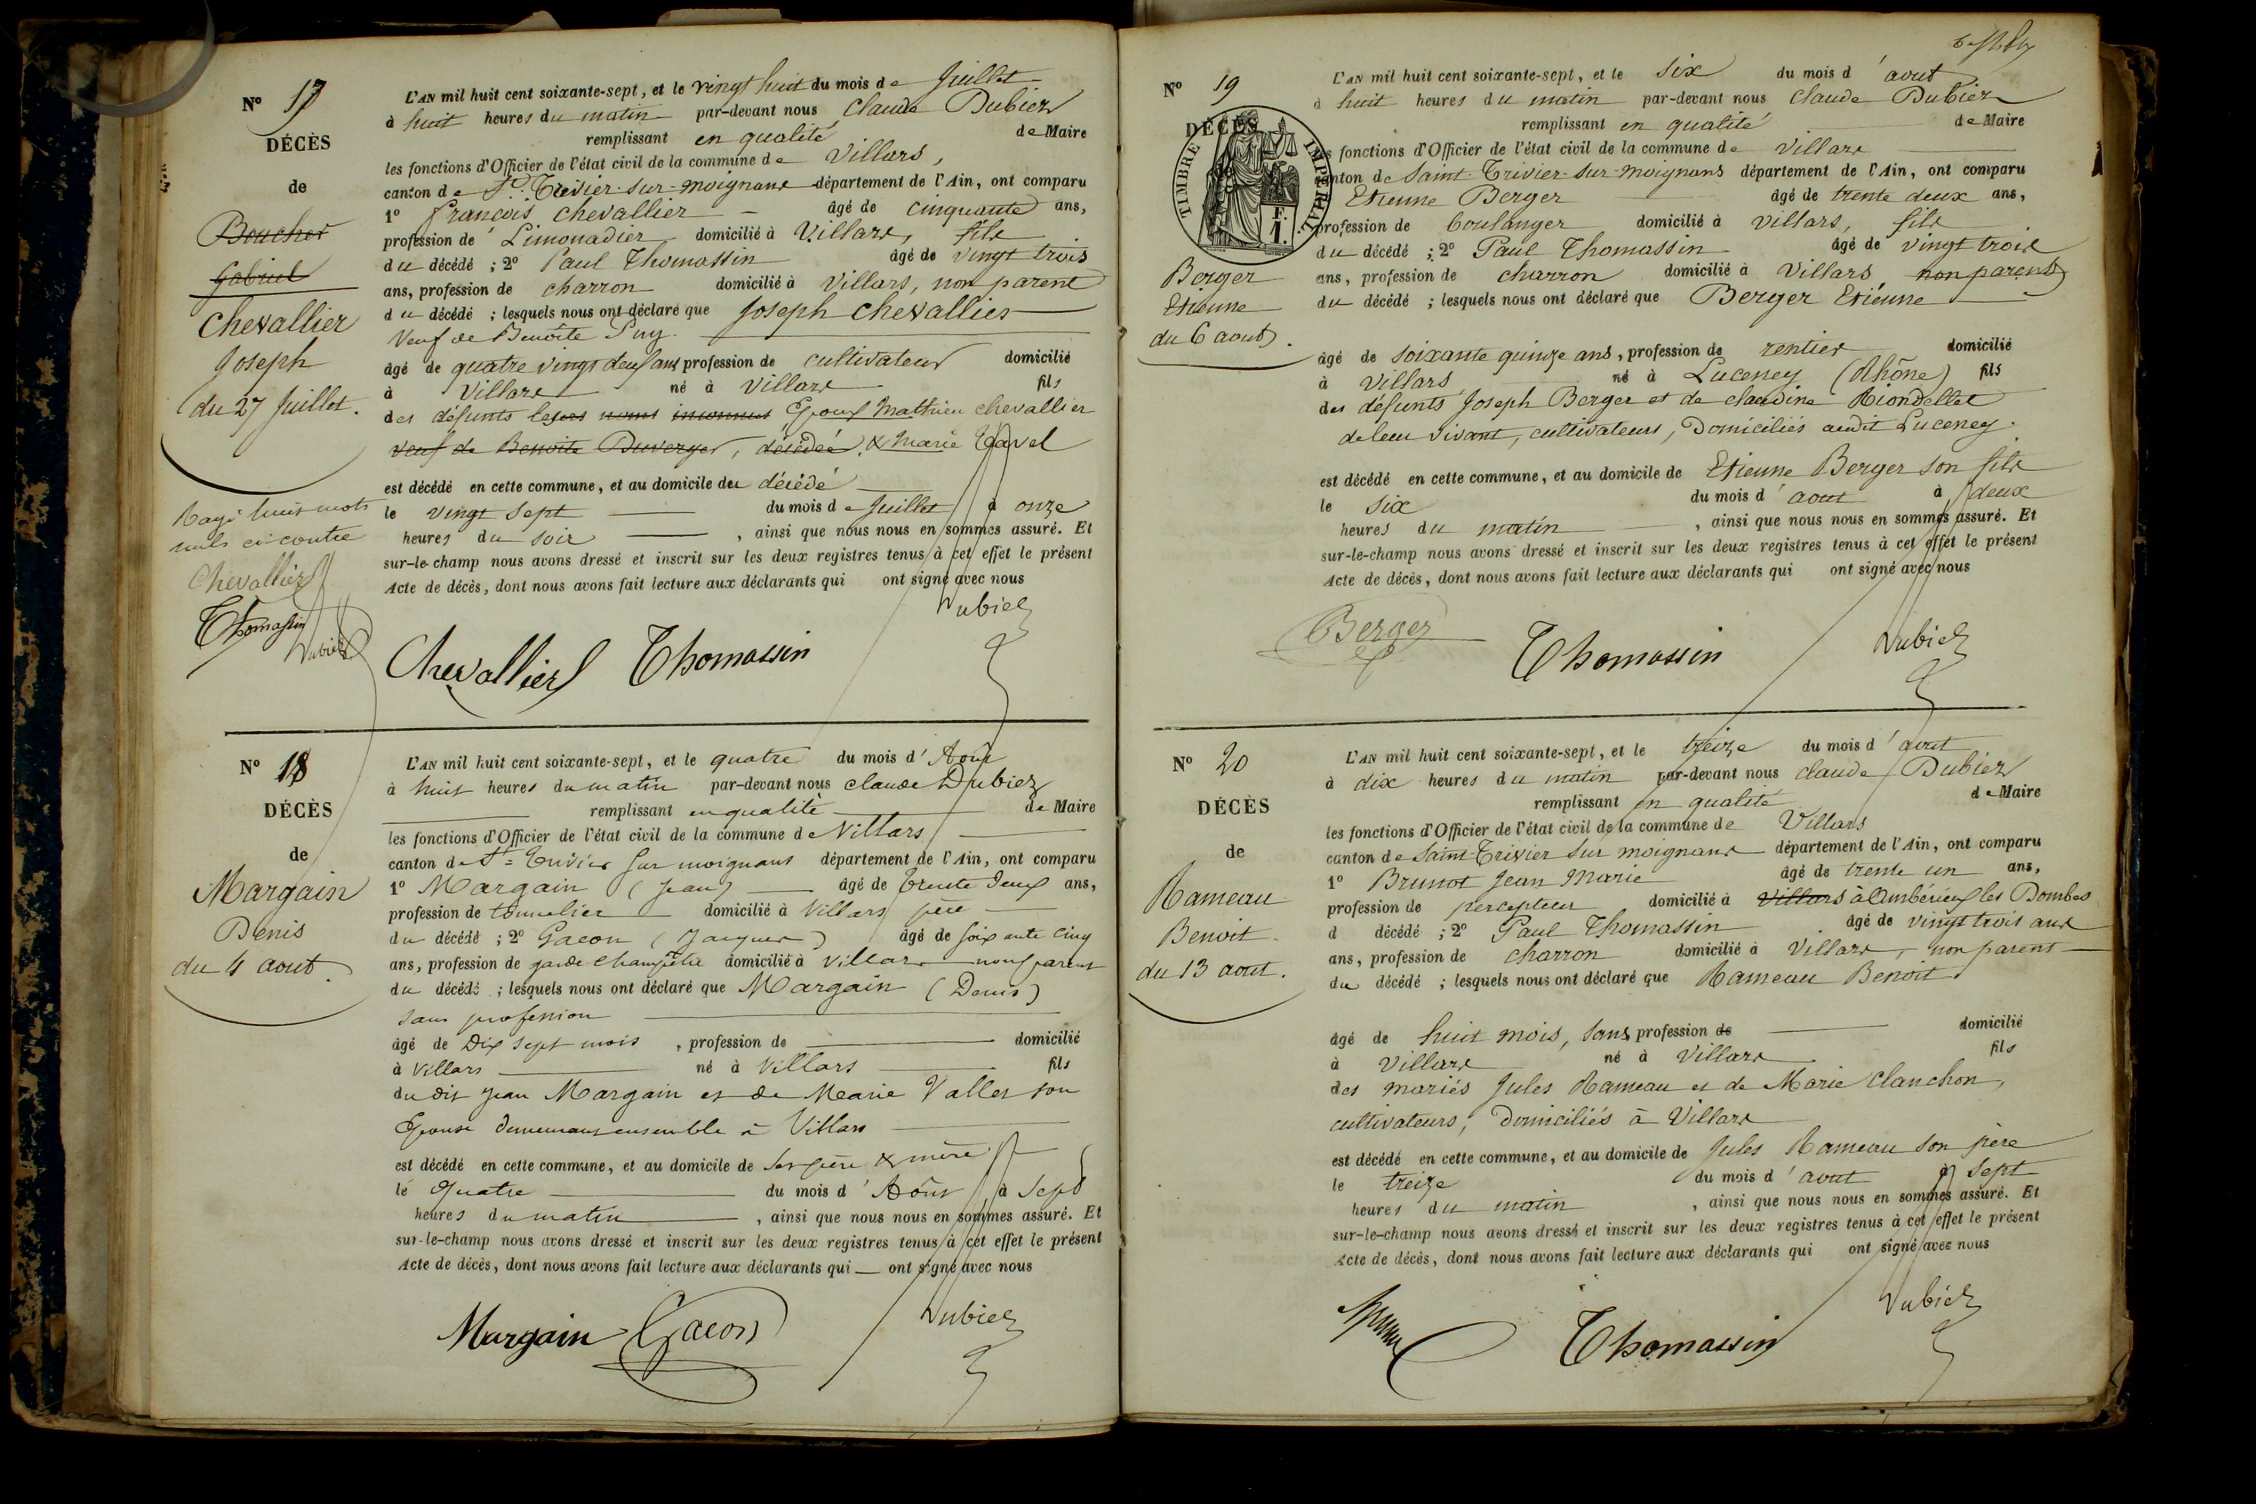 N° 17
DÉCÈS
de
Boucher
Gabriel
Chevallier
Joseph
du 27 Juillet.
Rayé huit mots
nuls ci-contre
Chevallier
Thomassin
Dubiez
L'AN mil huit cent soixante-sept, et le vingt huit du mois de Juillet
à huit heures du matin par-devant nous Claude Dubiez
remplissant en qualité de Maire
les fonctions d'Officier de l'état civil de la commune de Villars,
canton de St. Trivier-sur-moignans département de l'Ain, ont comparu
1° françois chevallier âgé de cinquante ans,
profession de Limonadier domicilié à Villars, fils
du décédé ; 2° Paul Thomassin âgé de vingt trois
ans, profession de charron domicilié à Villars, non parent
du décédé ; lesquels nous ont déclaré que Joseph chevallier
Veuf de Benoîte Puy
âgé de quatre vingt deux ans profession de cultivateur domicilié
à Villars né à Villars fils
des défunts leurs noms inconnus Epoux Mathieu chevallier
veuf de Benoite Duverger, décédée, & Marie Tavel
est décédé en cette commune, et au domicile du décédé
le vingt sept du mois de Juillet à onze
heures du soir , ainsi que nous nous en sommes assuré. Et
sur-le-champ nous avons dressé et inscrit sur les deux registres tenus à cet effet le présent
Acte de décès, dont nous avons fait lecture aux déclarants qui ont signé avec nous
Dubiez
Chevallier Thomassin
N° 18
DÉCÈS
de
Margain
Denis
du 4 aout.
L'AN mil huit cent soixante-sept, et le quatre du mois d'Aout
à huit heures du matin par-devant nous claude Dubiez
remplissant en qualité de Maire
les fonctions d'Officier de l'état civil de la commune de Villars
canton de St Trivier sur moignans département de l'Ain, ont comparu
1° Margain (Jean) âgé de trente deux ans,
profession de tonnelier domicilié à Villars père
du décédé ; 2° Gacon (Jacques) âgé de soixante cinq
ans, profession de garde champêtre domicilié à Villars non parent
du décédé ; lesquels nous ont déclaré que Margain (Denis)
sans profession
âgé de Dix sept mois , profession de domicilié
à Villars né à Villars fils
du dit Jean Margain et de Marie Vallet son
Epouse demeurant ensemble à Villars
est décédé en cette commune, et au domicile de ses père & mère
le quatre du mois d'Aout à sept
heures du matin , ainsi que nous nous en sommes assuré. Et
sur-le-champ nous avons dressé et inscrit sur les deux registres tenus à cet effet le présent
Acte de décès, dont nous avons fait lecture aux déclarants qui ont signé avec nous
Dubiez
Margain Gacon
N° 19
DÉCÈS
de
TIMBRE IMPERIAL
F. 1.
Berger
Etienne
du 6 aout.
L'AN mil huit cent soixante-sept, et le six du mois d'aout
à huit heures du matin par-devant nous claude Dubiez
remplissant en qualité de Maire
les fonctions d'Officier de l'état civil de la commune de Villars
canton de Saint-Trivier-sur-moignans département de l'Ain, ont comparu
Etienne Berger âgé de trente deux ans,
profession de boulanger domicilié à Villars, fils
du décédé ; 2° Paul Thomassin âgé de vingt trois
ans, profession de charron domicilié à Villars non parent
du décédé ; lesquels nous ont déclaré que Berger Etienne
âgé de soixante quinze ans, profession de rentier domicilié
à Villars né à Luceney (Rhône) fils
des défunts Joseph Berger et de claudine Riondellet
de leur vivant, cultivateurs, Domiciliés audit Luceney.
est décédé en cette commune, et au domicile de Etienne Berger son fils
le six du mois d'aout à deux
heures du matin , ainsi que nous nous en sommes assuré. Et
sur-le-champ nous avons dressé et inscrit sur les deux registres tenus à cet effet le présent
Acte de décès, dont nous avons fait lecture aux déclarants qui ont signé avec nous
Berger Thomassin Dubiez
N° 20
DÉCÈS
de
Rameau
Benoit
du 13 aout.
L'AN mil huit cent soixante-sept, et le treize du mois d'aout
à dix heures du matin par-devant nous claude Dubiez
remplissant en qualité de Maire
les fonctions d'Officier de l'état civil de la commune de Villars
canton de Saint-Trivier sur moignans département de l'Ain, ont comparu
1° Brunot Jean Marie âgé de trente un ans,
profession de percepteur domicilié à Villars à Ambérieux les Dombes
d décédé ; 2° Paul Thomassin âgé de vingt trois ans
ans, profession de charron domicilié à Villars, non parent
du décédé ; lesquels nous ont déclaré que Rameau Benoit
âgé de huit mois, sans profession de domicilié
à Villars né à Villars fils
des mariés Jules Rameau et de Marie Clanchon,
cultivateurs, Domiciliés à Villars
est décédé en cette commune, et au domicile de Jules Rameau son père
le treize du mois d'aout à sept
heures du matin , ainsi que nous nous en sommes assuré. Et
sur-le-champ nous avons dressé et inscrit sur les deux registres tenus à cet effet le présent
Acte de décès, dont nous avons fait lecture aux déclarants qui ont signé avec nous
Thomassin Dubiez